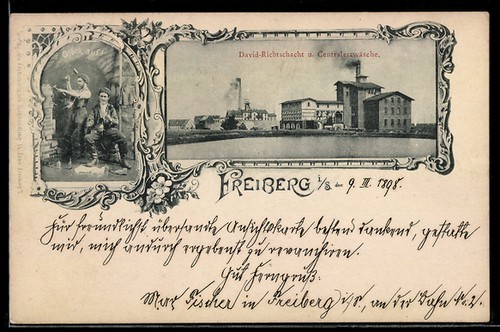 David-Richtschacht u. Centralerzwäsche.
FREIBERG i/S. den 9. III. 1898.
Für freundlichst übersandte Ansichtskarte bestens dankend, gestatte
mir, mich andurch ergebenst zu revanchiren.
Gut
Max Fischer in Freiberg i/S., an der Bahn No. 2.